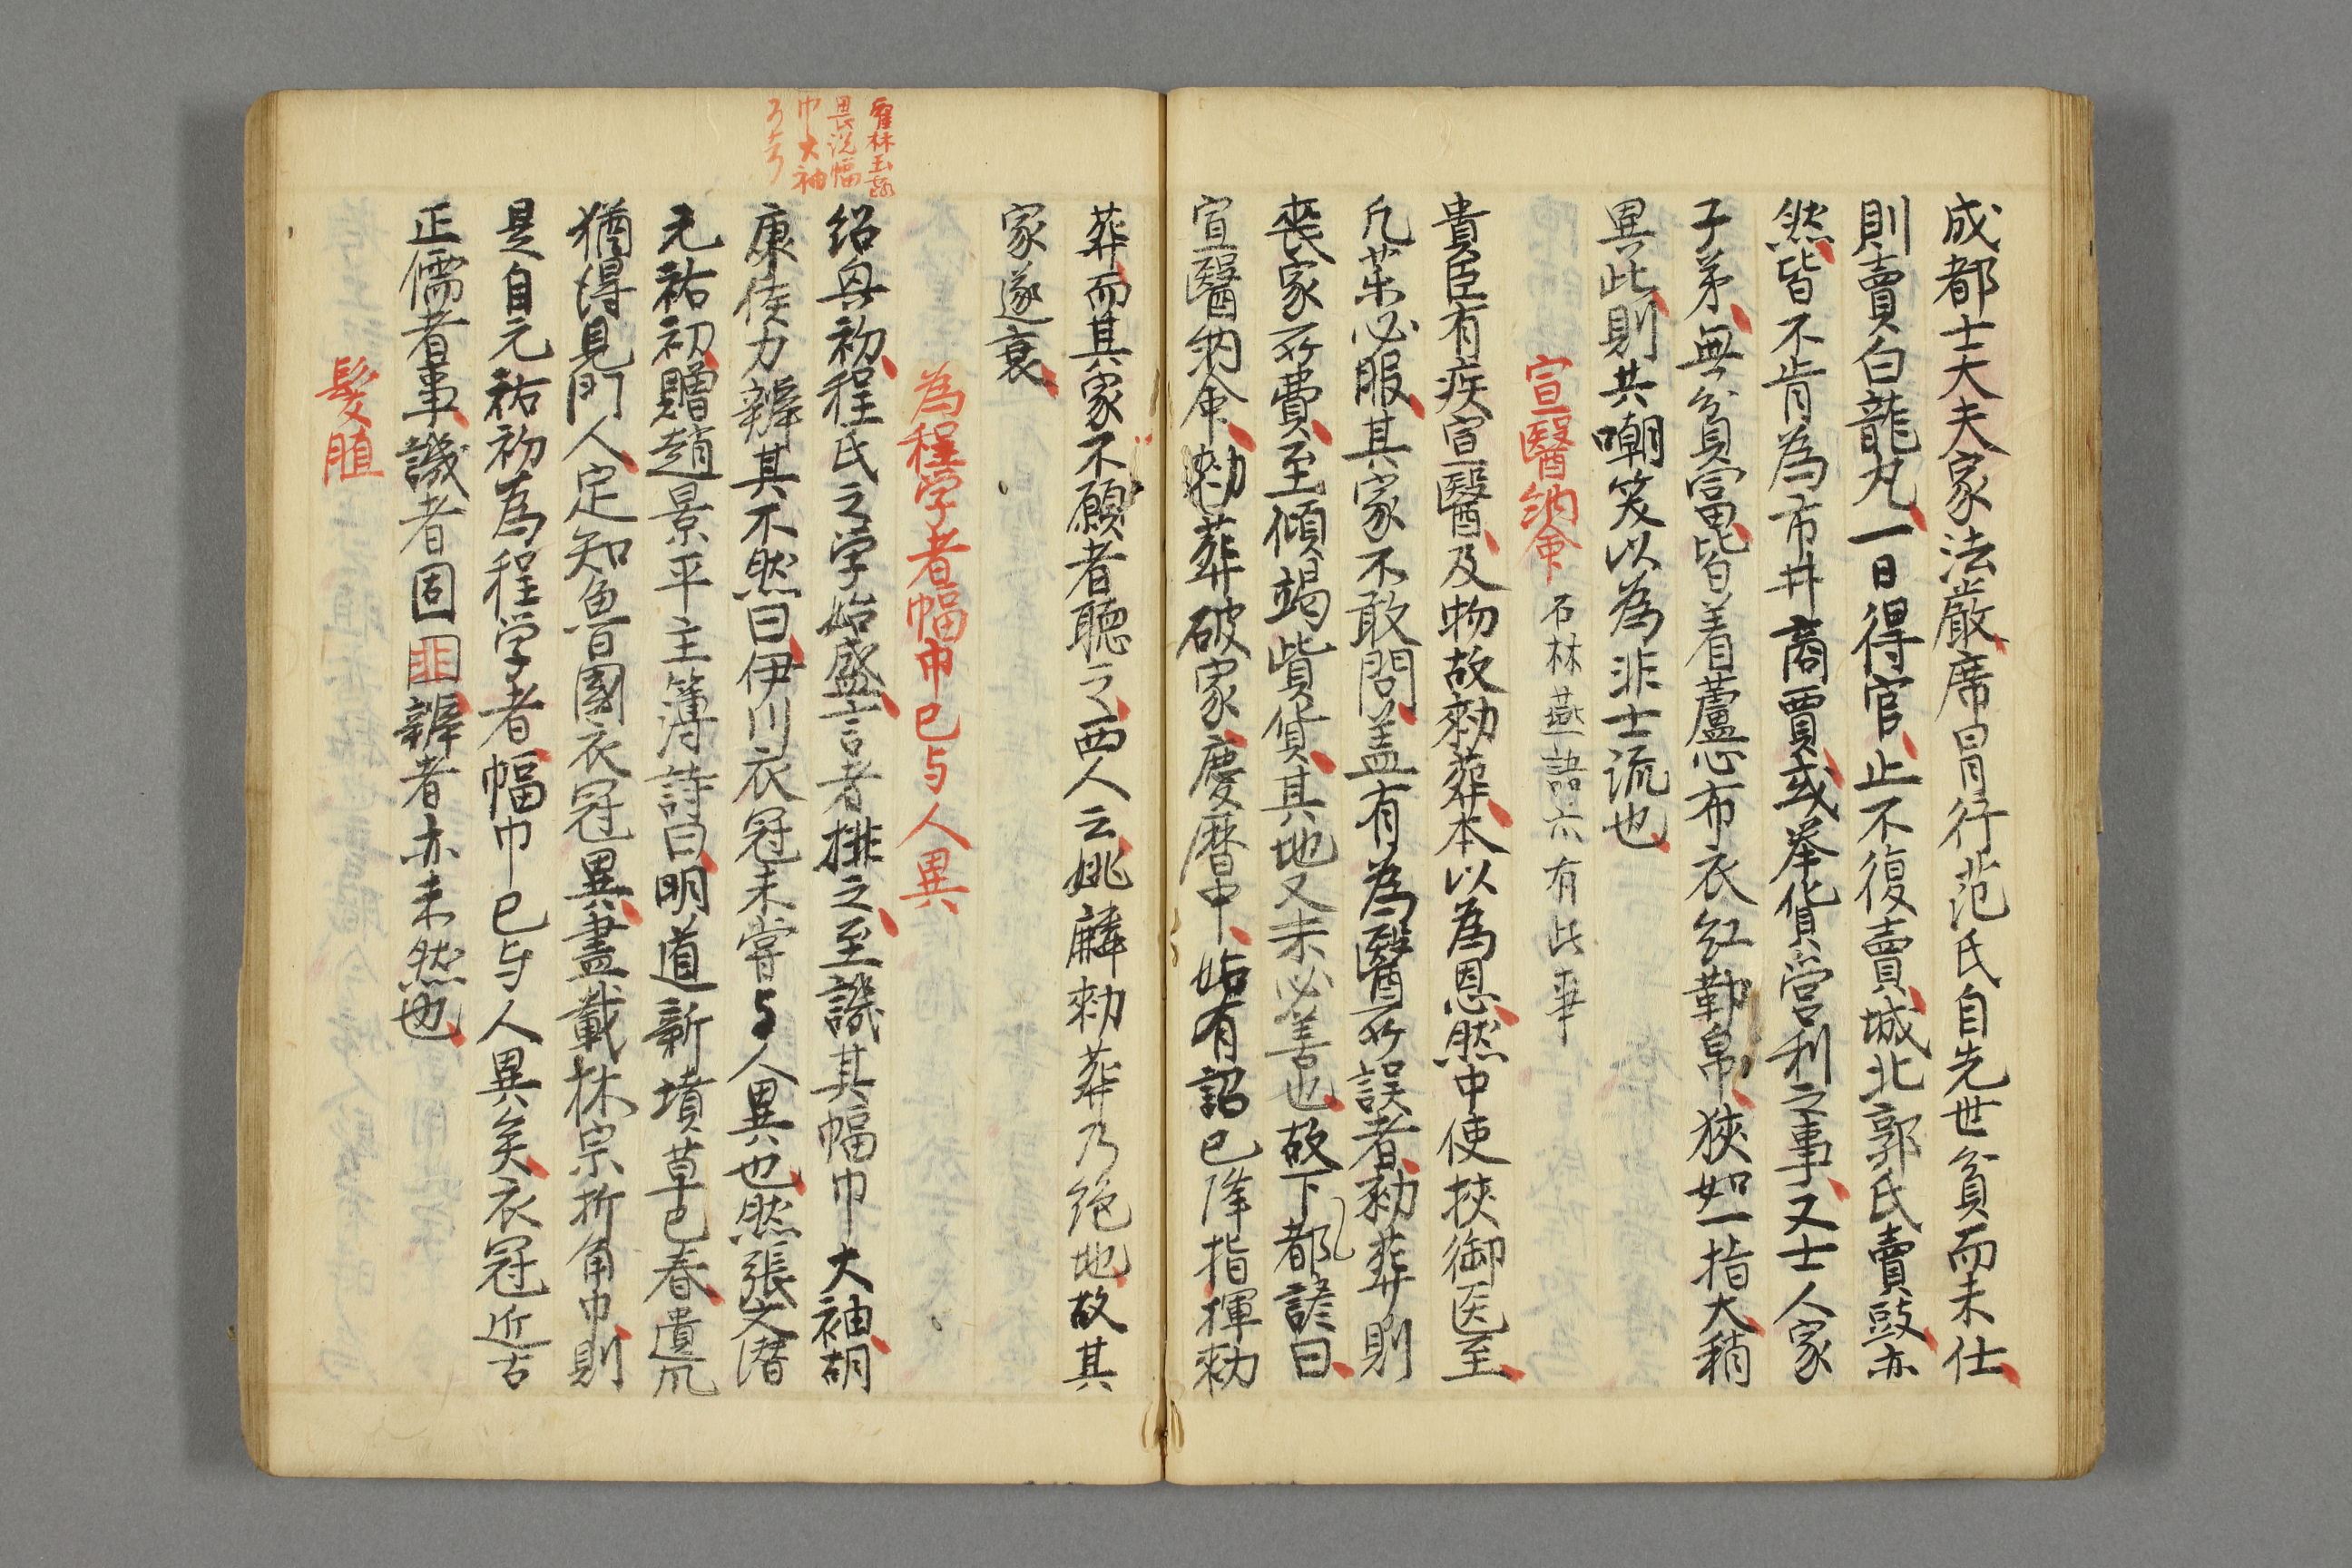 成都士大夫家法嚴席冐行范氏自先世貧而未仕
則賣白龍丸一日得官止不復賣城北郭氏賣豉亦
然皆不肯為市井商賈或舉貨営利之事又士人家
子弟無貧富皆着蘆心布衣紅勒帛狹如一指大稍
異此則共嘲笑以為非士流也
宣醫納命 石林燕語六有此事
貴臣有疾宣醫及物故勑葬本以為恩然中使挾御医至
凡藥必服其家不敢問盖有為醫所誤者勑葬則
喪家所費至傾竭貲貨其地又未必善也故下都諺曰
宣醫納命勑葬破家慶曆中始有詔已降指揮勑
葬而其家不願者聽之西人云姚麟勑葬乃絶地故其
家遂衰
為程学者幅巾已与人異
隺林玉露
畏説幅
巾大袖
可考
紹興初程氏之学始盛言者排之至譏其幅巾大袖胡
康侯力辨其不然曰伊川衣冠未嘗与人異也然張文潜
元祐初贈趙景平主簿詩曰明道新墳草已春遺风
猶得見門人定知魯國衣冠異盡戴林宗折角巾則
是自元祐初為程学者幅巾已与人異矣衣冠近古
正儒者事譏者固非辨者亦未然也
髮䐈